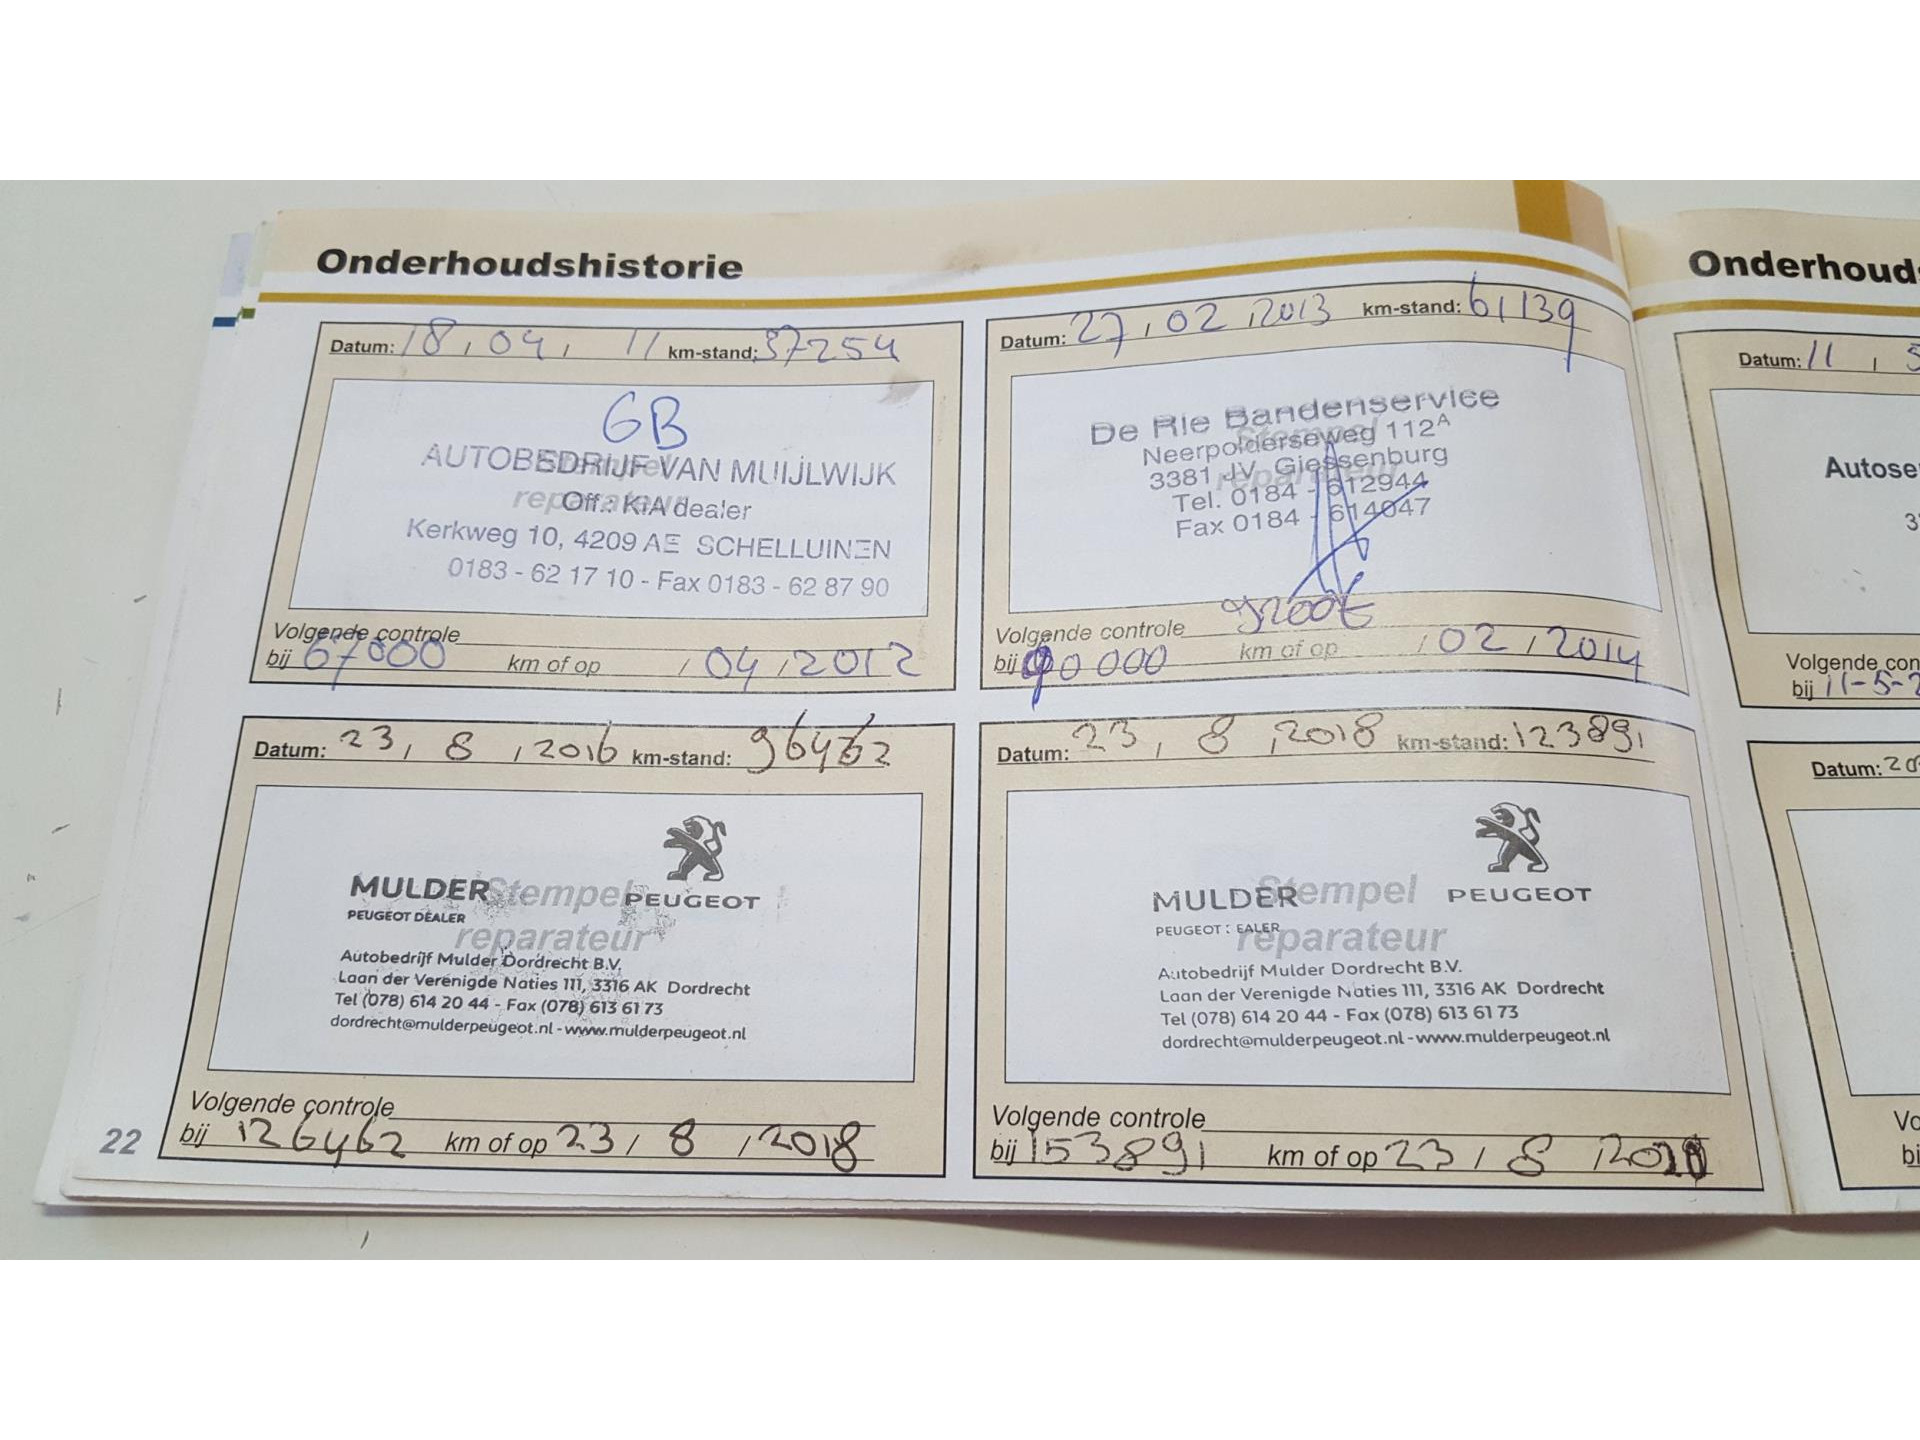 Onderhoudshistorie
Datum: 18, 04, 11 km-stand: 37254
GB
Stempel
reparateur
AUTOBEDRIJF VAN MUIJLWIJK
Off.: KIA dealer
Kerkweg 10, 4209 AE SCHELLUINEN
0183 - 62 17 10 - Fax 0183 - 62 87 90
Volgende controle
bij 67000 km of op / 04 / 2012
Datum: 27, 02, 2013 km-stand: 61139
De Rie Bandenservice
Stempel
reparateur
Neerpolderseweg 112A
3381 JV Giessenburg
Tel. 0184 - 612944
Fax 0184 - 614047
groot
Volgende controle
bij 90 000 km of op / 02 / 2014
Datum: 23, 8, 2016 km-stand: 96462
PEUGEOT
MULDER
PEUGEOT DEALER
Stempel
reparateur
Autobedrijf Mulder Dordrecht B.V.
Laan der Verenigde Naties 111, 3316 AK Dordrecht
Tel (078) 614 20 44 - Fax (078) 613 61 73
dordrecht@mulderpeugeot.nl - www.mulderpeugeot.nl
Volgende controle
bij 126462 km of op 23 / 8 / 2018
Datum: 23, 8, 2018 km-stand: 123891
PEUGEOT
MULDER
PEUGEOT : EALER
Stempel
reparateur
Autobedrijf Mulder Dordrecht B.V.
Laan der Verenigde Naties 111, 3316 AK Dordrecht
Tel (078) 614 20 44 - Fax (078) 613 61 73
dordrecht@mulderpeugeot.nl - www.mulderpeugeot.nl
Volgende controle
bij 153891 km of op 23 / 8
22
Onderhouds
Datum: 11 , 5
Autose
3
Volgende con
bij 11-5-2
Datum: 20
Vo
bi